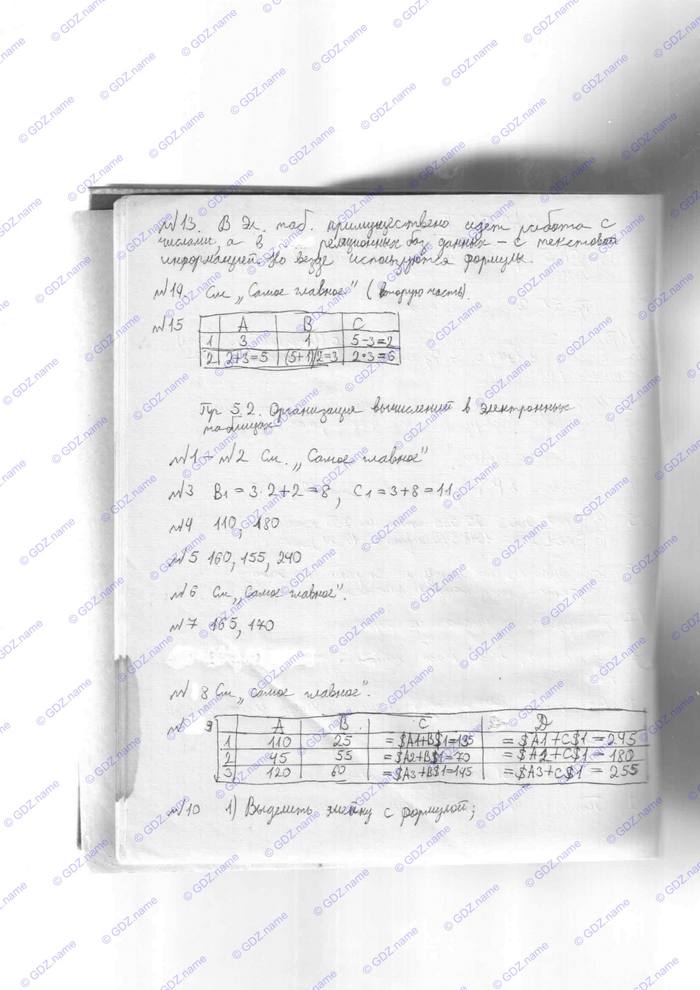 №13. В Эл. таб. приимущественно идет работа с
числами, а в реляционных баз данных – с текстовой
информацией. Но везде используются формулы.
№14. См „Самое главное" (вторую часть).
№15
A B C
1 3 1 5-3=2
2 2+3=5 (5+1)/2=3 2•3=6
5.2. Организация вычислений в электронных
таблицах
№1 ÷ №2 См. „Самое главное"
№3 B1 = 3·2+2 = 8, C1 = 3+8 = 11
№4 110, 180
№5 160, 155, 240
№6 См „Самое главное".
№7 165, 170
№8 См „Самое главное".
№9
A B C D
1 110 25 =$A1+B$1=135 =$A1+C$1=245
2 45 55 =$A2+B$1=70 =$A2+C$1=180
3 120 60 =$A3+B$1=145 =$A3+C$1=255
№10 1) Выделить ячейку с формулой;
© GDZ.name